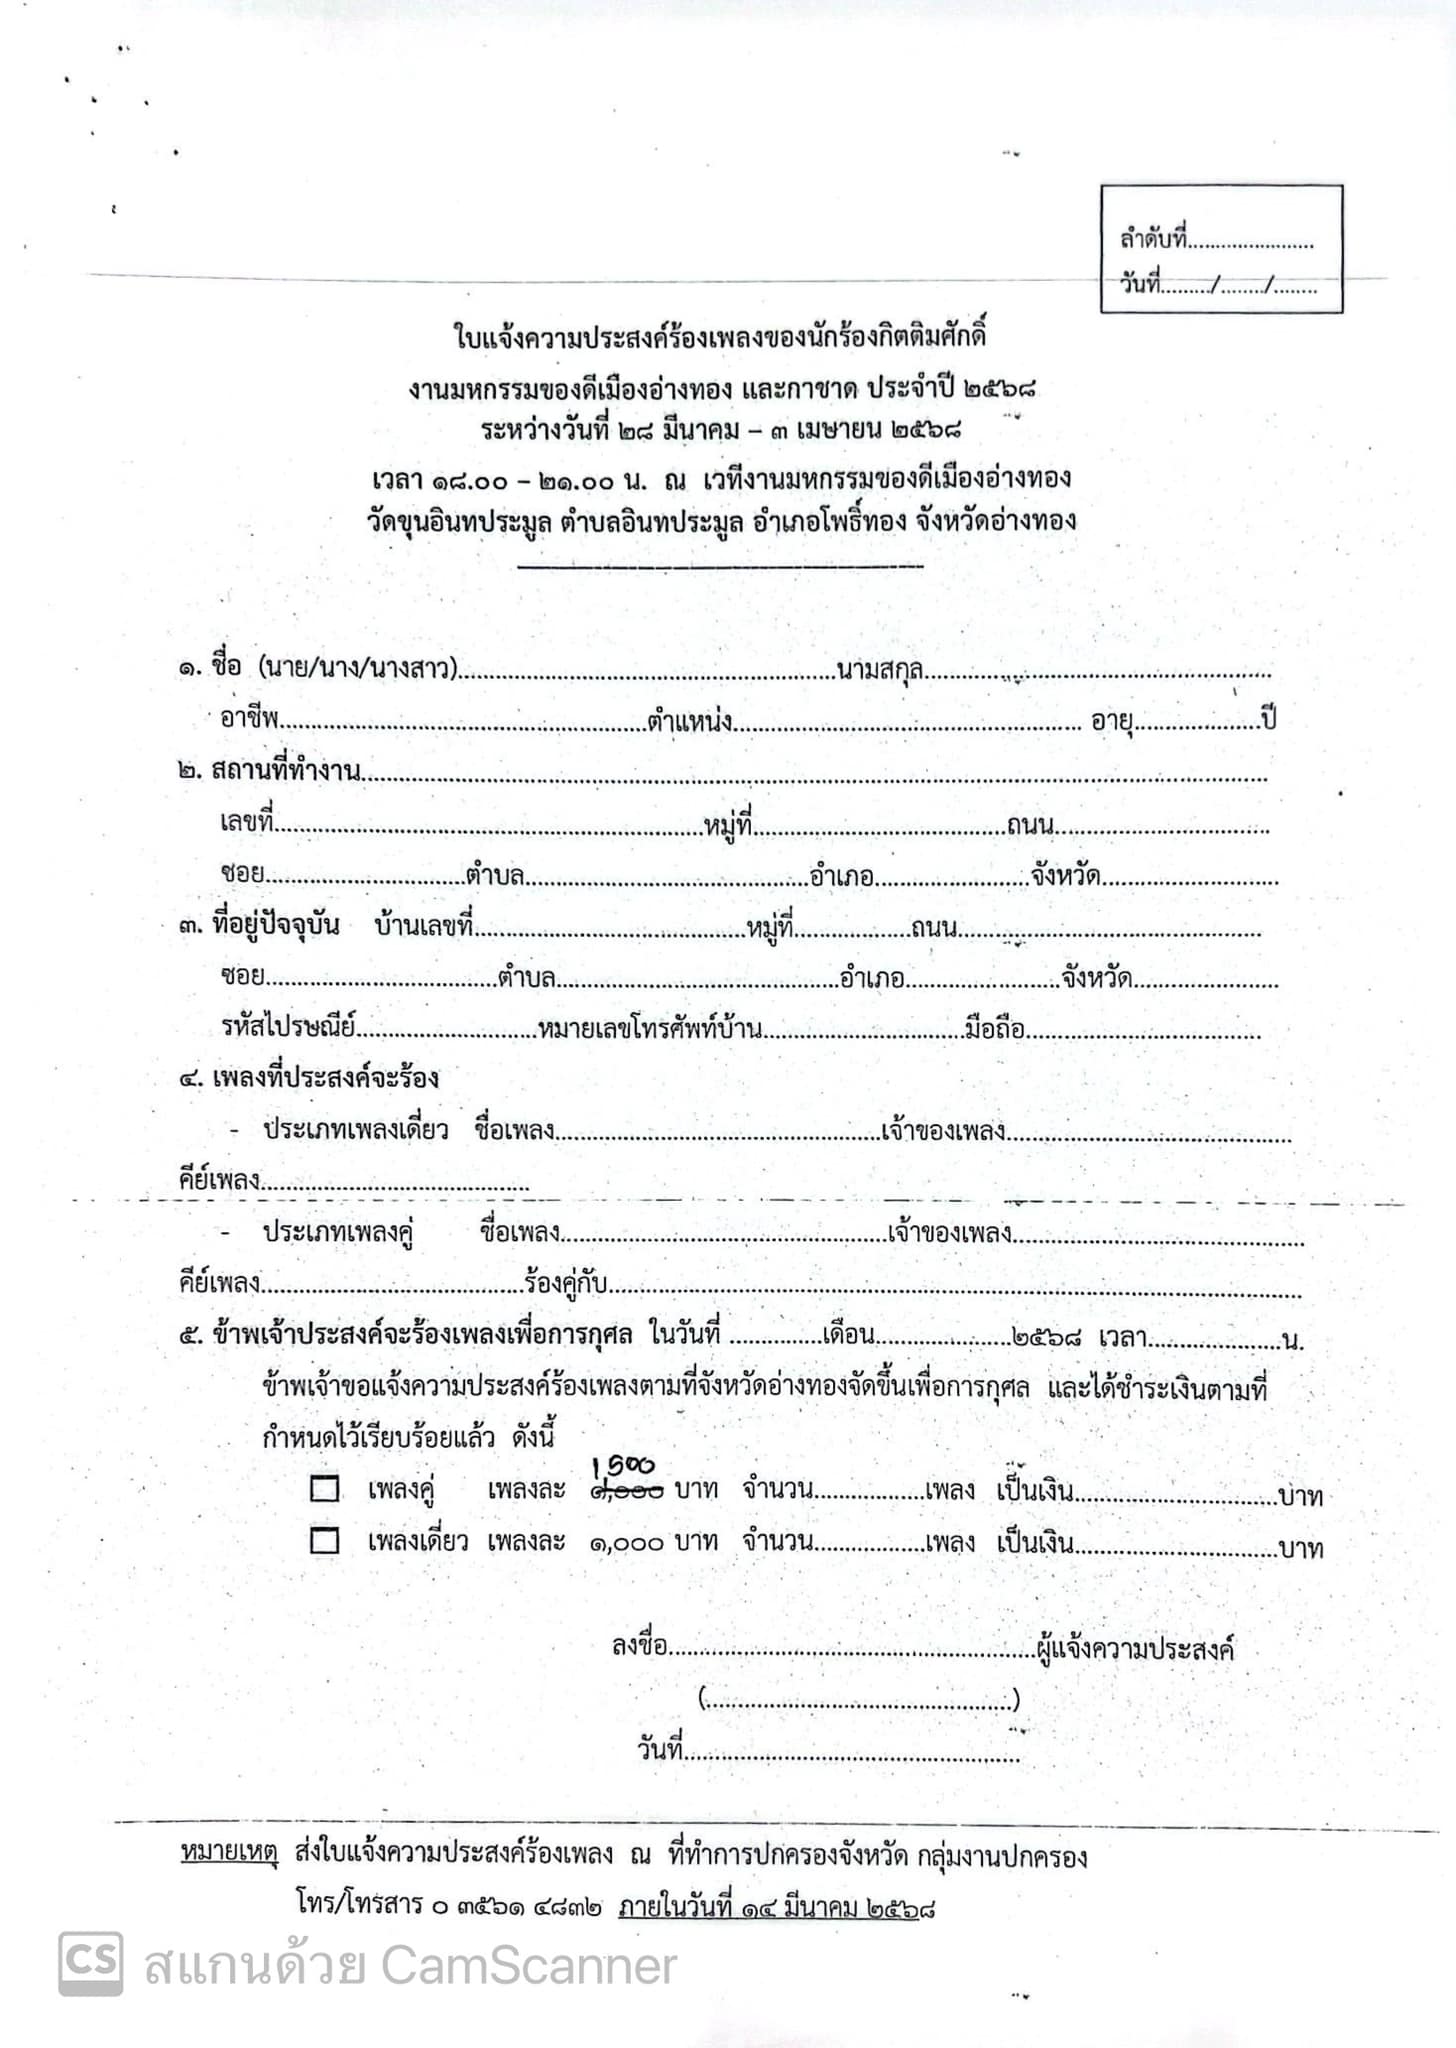 ลำดับที่......................
วันที่........./......../........
ใบแจ้งความประสงค์ร้องเพลงของนักร้องกิตติมศักดิ์
งานมหกรรมของดีเมืองอ่างทอง และกาชาด ประจำปี ๒๕๖๘
ระหว่างวันที่ ๒๘ มีนาคม – ๓ เมษายน ๒๕๖๘
เวลา ๑๘.๐๐ – ๒๑.๐๐ น. ณ เวทีงานมหกรรมของดีเมืองอ่างทอง
วัดขุนอินทประมูล ตำบลอินทประมูล อำเภอโพธิ์ทอง จังหวัดอ่างทอง
๑. ชื่อ (นาย/นาง/นางสาว)..........................................................นามสกุล......................................................
อาชีพ.........................................................ตำแหน่ง...................................................... อายุ....................ปี
๒. สถานที่ทำงาน..............................................................................................................................................
เลขที่..................................................................หมู่ที่.......................................ถนน.................................
ซอย...............................ตำบล............................................อำเภอ........................จังหวัด...........................
๓. ที่อยู่ปัจจุบัน บ้านเลขที่..........................................หมู่ที่..................ถนน...............................................
ซอย....................................ตำบล............................................อำเภอ........................จังหวัด......................
รหัสไปรษณีย์............................หมายเลขโทรศัพท์บ้าน...............................มือถือ....................................
๔. เพลงที่ประสงค์จะร้อง
- ประเภทเพลงเดี่ยว ชื่อเพลง..................................................เจ้าของเพลง............................................
คีย์เพลง..........................................
- ประเภทเพลงคู่ ชื่อเพลง..................................................เจ้าของเพลง.............................................
คีย์เพลง.........................................ร้องคู่กับ...........................................................................................................
๕. ข้าพเจ้าประสงค์จะร้องเพลงเพื่อการกุศล ในวันที่ ..............เดือน.....................๒๕๖๘ เวลา.....................น.
ข้าพเจ้าขอแจ้งความประสงค์ร้องเพลงตามที่จังหวัดอ่างทองจัดขึ้นเพื่อการกุศล และได้ชำระเงินตามที่
กำหนดไว้เรียบร้อยแล้ว ดังนี้
1500
เพลงคู่ เพลงละ ๑,๐๐๐ บาท จำนวน.................เพลง เป็นเงิน................................บาท
เพลงเดี่ยว เพลงละ ๑,๐๐๐ บาท จำนวน.................เพลง เป็นเงิน................................บาท
ลงชื่อ.........................................................ผู้แจ้งความประสงค์
(................................................)
วันที่....................................................
หมายเหตุ ส่งใบแจ้งความประสงค์ร้องเพลง ณ ที่ทำการปกครองจังหวัด กลุ่มงานปกครอง
โทร/โทรสาร ๐ ๓๕๖๑ ๔๘๓๒ ภายในวันที่ ๑๔ มีนาคม ๒๕๖๘
CS สแกนด้วย CamScanner